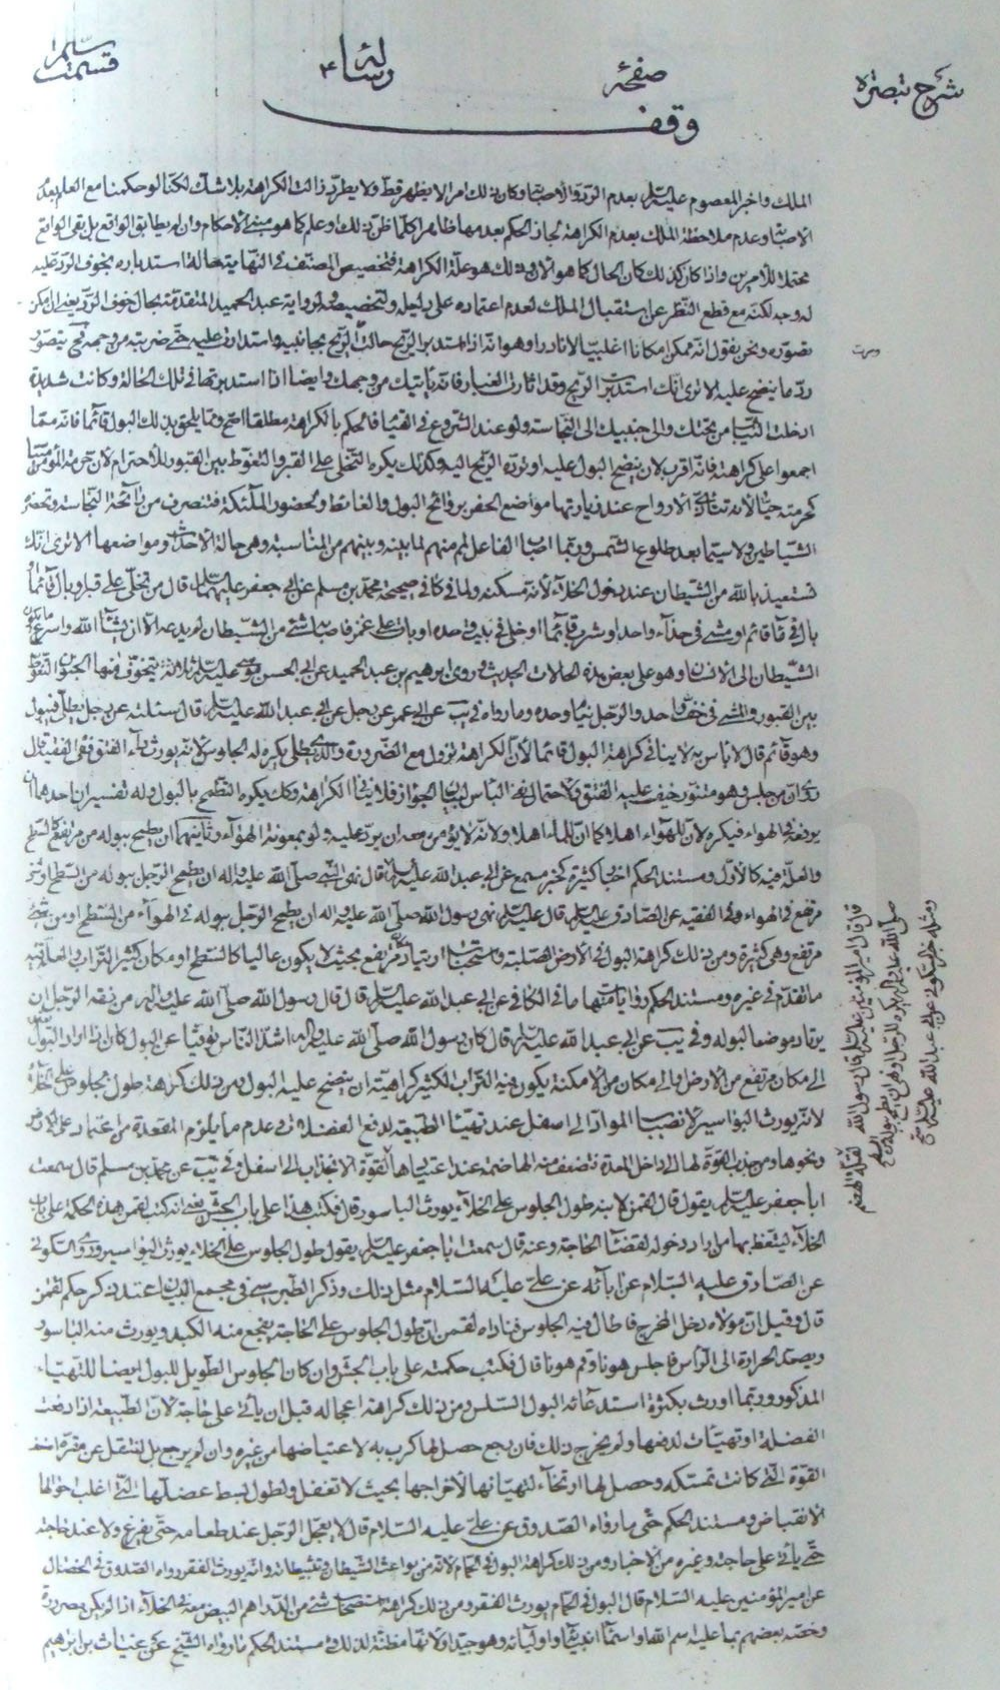 شرح تبصرة
صفحة
رسالة ۴
وقف
الملك واخبر المعصوم عليه السلم بعدم الرد والاصابة وكان ذلك امرا لا يظهر قط ولا يطرد زالت الكراهة بلا شك لكنا لو حكمنا مع العلم بعدم
الاصابة وعدم ملاحظة الملك بعدم الكراهة لجاز الحكم بعدمها ظاهرا كلما ظن ذلك او علم كما هو مبنى الاحكام وان لم يطابق الواقع بل بقى الواقع
محتملا للامرين واذا كان كذلك كان الحال كما هو الآن وذلك هو علة الكراهة فتخصيص المصنف فى النهاية بحالة استدباره بخوف الرد عليه
له وجه لكنه مع قطع النظر عن استقبال الملك لعدم اعتماده على دليله ولتخصيصه لرواية عبد الحميد المتقدمة بحال خوف الرد
تصوره ونحن نقول انه ممكن امكانا اغلبيا لا نادرا وهو انه اذا استدبر الريح حالت الريح بجانبيه واستدارت عليه حتى ضربته من وجهه فحينئذ يتصور
رد ما ينضح عليه الا ترى انك استدبرت الريح وقد اثارت الغبار فانه يأتيك من وجهك وايضا اذا استدبرتها فى تلك الحالة وكانت شديدة
ادخلت الثياب من تحتك والى جنبيك الى النجاسة ولو عند الشروع فى القيام فالحكم بالكراهة مطلقا اصح ومما يلحق بذلك البول قائما فانه مما
اجمعوا على كراهته فانه اقرب لان ينضح البول عليه او ترده الريح اليه وكذلك يكره التخلى على القبر والتغوط بين القبور للاحترام لان حرمة المؤمن ميتا
كحرمته حيا لانه تتأذى الارواح عند زيارتها مواضع الحفر من روائح البول والغائط ولحضور الملئكة فتنصرف من رائحة النجاسة وتحضر
الشياطين ولا سيما بعد طلوع الشمس وربما اصاب الفاعل لمم منهم لما بينه وبينهم من المناسبة وهى حالة الاحداث ومواضعها الا ترى انك
تستعيذ بالله من الشيطان عند دخول الخلاء لانه مسكنه ولما فى كا فى صحيحة محمد بن مسلم عن ابى جعفر عليه السلم قال من تخلى على قبر او بال قائما او
بال فى ماء قائم او مشى فى حذاء واحد او شرب قائما او خلى فى بيت وحده او بات على غمر فاصابه شئ من الشيطان لم يدعه الا ان يشاء الله واسرع ما يكون
الشيطان الى الانسان وهو على بعض هذه الحالات الحديث وروى ابرهيم بن عبد الحميد عن ابى الحسن موسى عليه السلم ثلاثة يتخوف منها الجنون التغوط
بين القبور والمشى فى خف واحد والرجل ينام وحده وما رواه فى يب عن ابى عمير عن رجل عن ابى عبد الله عليه السلم قال سئلته عن رجل يطلى فيبول
وهو قائم قال لا باس به لا ينافى كراهة البول قائما لان الكراهة تزول مع الضرورة والذى يطلى يكره له الجلوس لانه يورث داء الفتق ففى الفقيه قال
روى ان من جلس وهو متنور خيف عليه الفتق ولاحتمال نفى الباس لبيان الجواز فلا ينافى الكراهة وكك يكره التطميح بالبول وله تفسيران احدهما ان
يرفعه فى الهواء فيكره لان للهواء اهلا كما ان للماء اهلا ولانه لا يؤمن بعد ان يرد عليه ولو بمعونة الهواء وثانيهما ان يطمح ببوله من مرتفع كالسطح
والعلة فيه كالاول ومستند الحكم اخبار كثيرة كخبر مسمع عن ابى عبد الله عليه السلم قال نهى النبى صلى الله عليه واله ان يطمح الرجل ببوله من السطح او شئ
مرتفع فى الهواء وفى الفقيه عن الصادق عليه السلم قال عليه السلم نهى رسول الله صلى الله عليه واله ان يطمح الرجل ببوله فى الهواء من السطح او من شئ
مرتفع وهى كثيرة ومن ذلك كراهة البول فى الارض الصلبة واستحباب ارتياد مكان مرتفع بحيث لا يكون عاليا كالسطح او مكان كثير التراب والعلة فيه
ما تقدم فى غيره ومستند الحكم روايات منها ما فى الكافى عن ابى عبد الله عليه السلم قال قال رسول الله صلى الله عليه واله من فقه الرجل ان
يرتاد موضعا لبوله وفى يب عن ابى عبد الله عليه السلم قال كان رسول الله صلى الله عليه واله اشد الناس توقيا عن البول كان اذا اراد البول يعمد
الى مكان مرتفع من الارض والى مكان من الامكنة يكون فيه التراب الكثير كراهية ان ينضح عليه البول ومن ذلك كراهة طول الجلوس على الخلاء
لانه يورث البواسير لانصباب المواد الى اسفل عند تهيئ الطبيعة لدفع الفضلة فى عدم ما يلزم المقعدة من اعتماد على الارض
ونحوها ومن جذب القوة لها الى داخل المعدة فتضعف منه الهاضمة عند اعتيادها لقوة الانجذاب الى اسفل وفى يب عن محمد بن مسلم قال سمعت
ابا جعفر عليه السلم يقول قال لقمن لابنه طول الجلوس على الخلاء يورث الباسور قال فكتب هذا على باب الحش يعنى انه كتب لقمن هذه الحكمة على باب
الخلاء ليتعظ بها من اراد دخوله لقضاء الحاجة وعنه قال سمعت ابا جعفر عليه السلم يقول طول الجلوس على الخلاء يورث البواسير وروى السكونى
عن الصادق عليه السلام عن ابائه عن على عليه السلام مثل ذلك وذكر الطبرسى فى مجمع البيان عند ذكر حكم لقمن
قال وقيل ان مولاه دخل المخرج فاطال فيه الجلوس فناداه لقمن ان طول الجلوس على الحاجة يفجع منه الكبد ويورث منه الباسور
ويصعد الحرارة الى الراس فاجلس هونا وقم هونا قال فكتب حكمته على باب الحش وان كان الجلوس الطويل للبول ايضا للتهيئ
المذكور وربما اورث بكثرة استدعائه البول السلس ومن ذلك كراهة اعجاله قبل ان يأتى على حاجته لان الطبيعة اذا دفعت
الفضلة او تهيأت لدفعها ولم يخرج ذلك فان رجع حصل لها كرب به لاعتياضها من غيره وان لم يرجع بل انتقل عن مقره
القوة التى كانت تمسكه وحصل لها ارتخاء لتهيأنها لاخراجها بحيث لا تغفل ولطول بسط عضلها التى اغلب حوالها
الانقباض ومستند الحكم حتى ما رواه الصدوق عن على عليه السلام قال لا يعجل الرجل عند طعامه حتى يفرغ ولا عند حاجته
حتى يأتى على حاجته وغيره من الاخبار ومن ذلك كراهة البول فى الحمام لانه من بواعث الشيطان وتثبيطاته وانه يورث الفقر رواه الصدوق فى الخصال
عن امير المؤمنين عليه السلام قال البول فى الحمام يورث الفقر ومن ذلك كراهة استصحاب شئ من الدراهم البيض معه فى الخلاء اذا لم يكن مصرورة
وخصه بعضهم بما عليه اسم الله او اسماء انبيائه او اوليائه وهو جيد او لانها مظنة لذلك ومستند الحكم ما رواه الشيخ عن غياث بن ابرهيم
قال قال امير المؤمنين عليه السلم قال رسول الله
صلى الله عليه واله يكره للرجل او نهى ان يطمح ببوله من السطح
ومثله خبر السكونى عن ابى عبد الله عليه السلم